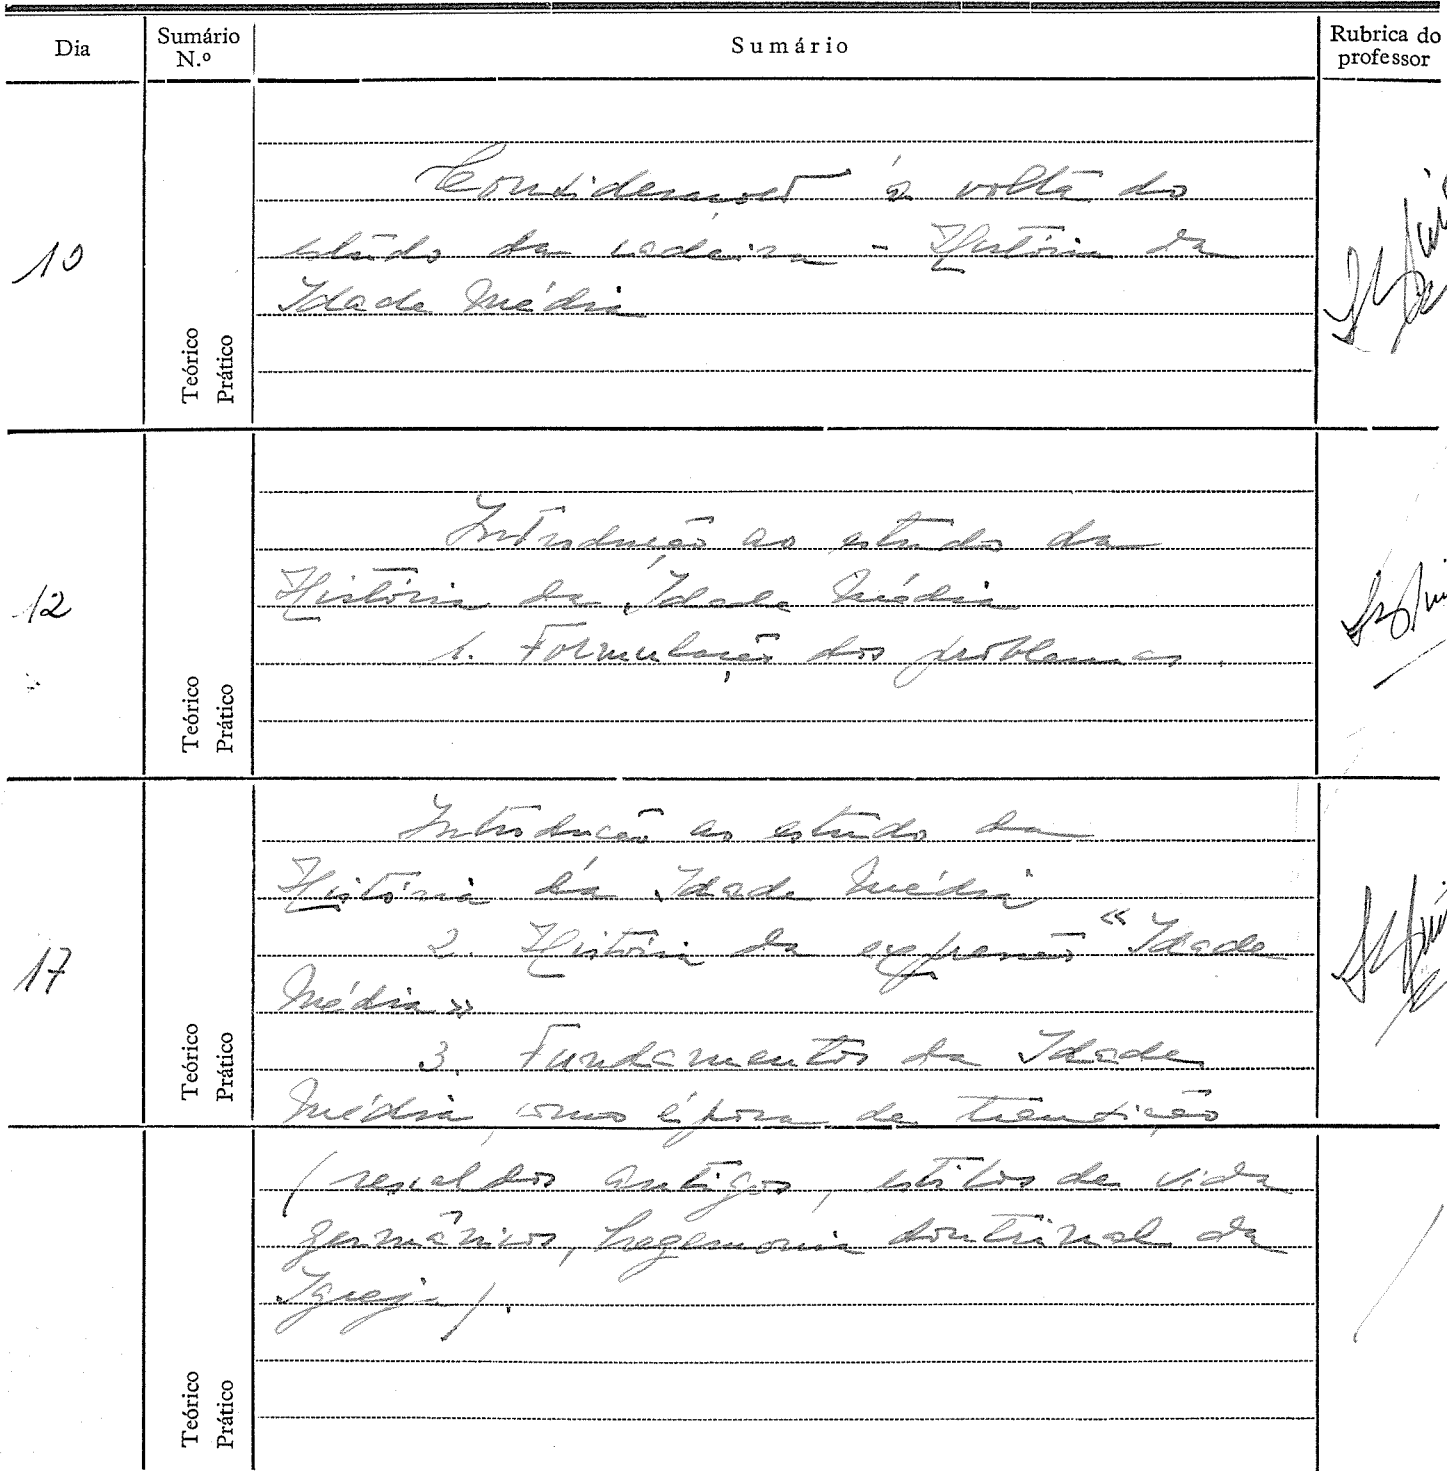 Dia Sumário N.º Sumário Rubrica do professor
Considerações à volta do
10 estudo da cadeira - História da
Idade Média
Teórico Prático
Introdução ao estudo da
12 História da Idade Média
1. Formulação dos problemas.
Teórico Prático
Introdução ao estudo da
História da Idade Média
17 2. História da expressão «Idade
Média»
3. Fundamentos da Idade
Média como época de transição
Teórico Prático
(rescaldos antigos, estilos de vida
germânicos, hegemonia doutrinal da
Igreja).
Teórico Prático